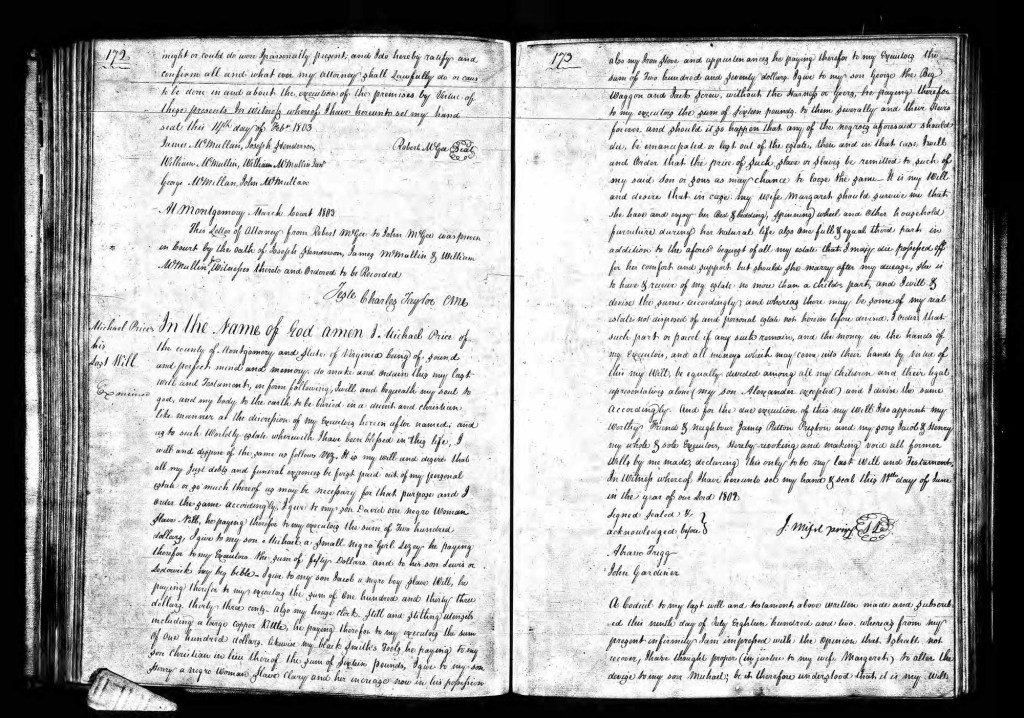 172
might or could do were I personally present, and I do hereby ratify and
confirm all and what ever my Attorney shall Lawfully do or cause
to be done in and about the execution of the premises by Virtue of
these presents. In witness whereof I have hereunto set my hand
seal this 11th day of Feby. 1803
James McMullin, Joseph Henderson,
Robert McGee Seal
William McMullin, William McMullin Junr
George McMillan, John McMullin
At Montgomery March Court 1803
This Letter of Attorney from Robert McGee to John McGee was proven
in Court by the oath of Joseph Henderson, James McMullin & William
McMullin Witnesses thereto and Ordered to be Recorded
Teste Charles Taylor CMC
Michael Prices
his
Last Will
Examined
In the Name of God amen I Michael Price of
the county of Montgomery and State of Virginia being of sound
and perfect mind and memory do make and ordain this my last
will and Testament, in form following, I will and bequeath my soul to
god, and my body to the earth to be buried in a decent and christian
like manner at the discretion of my executors herein after named; and
as to such Worldly estate wherewith I have been blessed in this life, I
will and dispose of the same as follows viz. It is my will and desire that
all my Just debts and funeral expences be first paid out of my personal
estate or so much thereof as may be necessary for that purpose and I
order the same accordingly. I give to my son David one negro Woman
slave Nell, he paying therefor to my executors the sum of two hundred
dollars, I give to my son Michael a small Negro Girl he paying
therefor to my Executors the sum of fifty Dollars and to his son Lewis or
Lodowick my big bible - I give to my son Jacob a negro boy slave Will, he
paying therefor to my executors the sum of One hundred and thirty three
dollars thirty three cents. also my house clock. Still and Stilling utensils
including a large copper Kettle, he paying therefor to my executors the sum
of One hundred dollars, likewise my black Smith's Tools, he paying to my
son Christian in lieu thereof the sum of sixteen pounds, I give to my son
Henry a negro Woman slave Clary and her increase now in his possession
173
also my Iron Stove and appurtenances he paying therefor to my Executors the
sum of Two hundred and seventy dollars. I give to my son George the Big
Waggon and Jack Screw, without the Harness or Geers, he paying therefor
to my executors the sum of Sixteen pounds. to them severally and their Heirs
forever and should it so happen that any of the negroes aforesaid should
die, be emancipated or kept out of the estate, then and in that case I will
and Order that the price of such slave or slaves be remitted to such of
my said son or sons as may chance to loose the same - It is my Will
and desire that in case my wife Margaret should survive me that
she have and enjoy her Bed & bedding, spinning wheel and other household
furniture during her natural life also one full & equal third part in
addition to the afores. bequest of all my estate that I may die possessed off
for her comfort and support but should she marry after my decease, she is
to have & receive of my estate no more than a childs part, and I will &
devise the same accordingly; and whereas there may be some of my real
estate not disposed of and personal estate not herein before devised, I order that
such part or parcel if any such remain, and the money in the hands of
my Executors, and all moneys which may come into their hands by virtue of
this my Will, be equally devided among all my children and their legal
representatives alone (my son Alexander excepted) and I devise the same
Accordingly. And for the due execution of this my Will I do appoint my
Worthy Friend & neighbour James Patton Preston and my sons Jacob & Henry
my whole & sole Executors, Hereby revoking and making void all former
Wills by me made, declaring this only to be my last Will and Testament.
In Witness whereof I have hereunto set my hand & seal this day of June
in the year of our Lord 1802.
Signed Sealed &
acknowledged before
LS
Abram Trigg
John Gardiner
A Codicil to my last will and testament above written made and subscrib
ed this ninth day of July Eighteen hundred and two. whereas from my
present infirmity I am impressed with the Opinion that I shall not
recover, I have thought proper (in justice to my wife Margaret) to alter the
devise to my son Michael; be it therefore understood that it is my Will